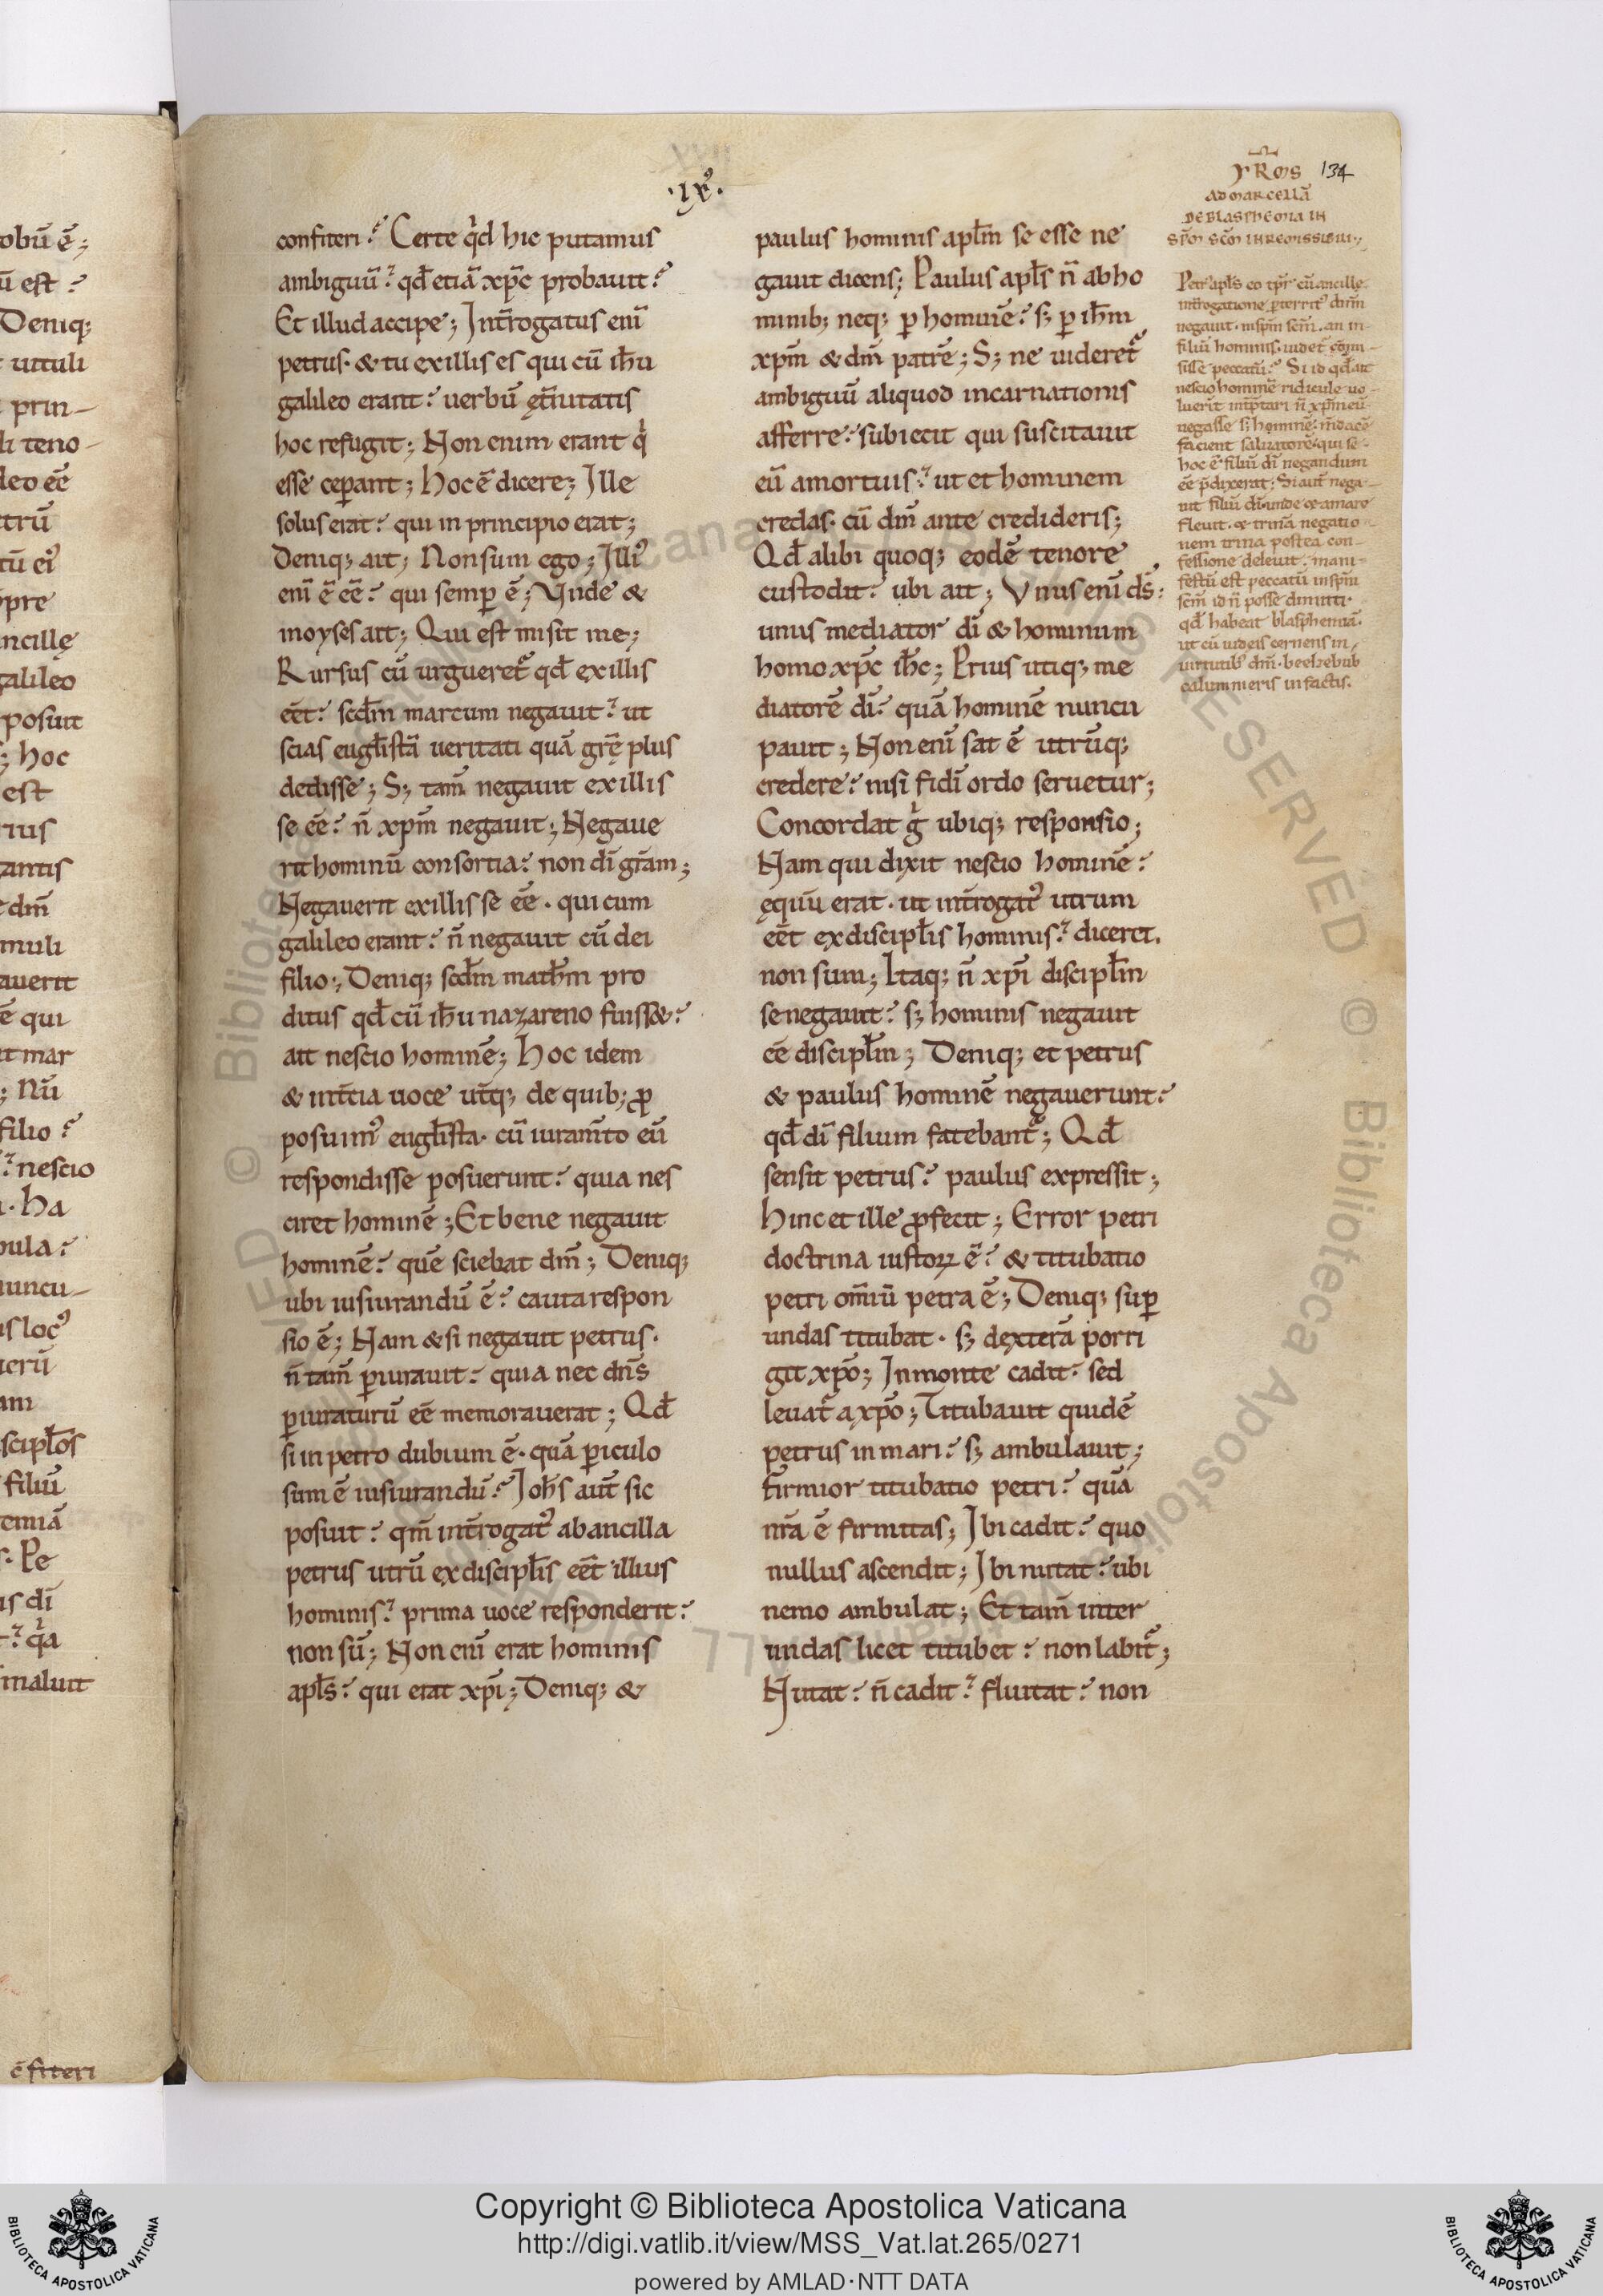 obū ē;
ū est?
Deniq;
uituli
prin-
li teno-
deo eē
trū
tū ei᾽
ꝓpre
ncillę
galileo
posuit
; hoc
est
rius
gantis
dm̄
muli
auerit
ē qui
t mar
; Nū
filio?
? nescio
. ha
bula?
nuncu-
s loc᾽
uerū
am
scipłos
filiū
emiā
. Pe
us dī
? q̇a
maluit
c̄fiteri
·ıx᾽·
confiteri? Certe q̇d hic putamus
ambiguū? qđ etiā xp̄c probauit?
Et illud accipe; Int̄rogatus enī
petrus· & tu ex illis es qui cū ih̄u
galileo erant? uerbū ęt̄nitatis
hoc refugit; Non enim erant q̇
esse ceꝑant; hoc ē dicere; Ille
solus erat? qui in principio erat;
Deniq; ait; Non sum ego; Illi᾽
enī ē eē? qui semꝑ ē; Vnde &
moyses ait; Qui est misit me;
Rursus cū urgueret᷑ qđ ex illis
eēt? scđm marcum negauit? ut
scias eugl̄istā ueritati quā gr̄ę plus
dedisse; S; tam̄ negauit ex illis
se eē? n̄ xpm̄ negauit; Negaue
rit hominū consortia? non dī gr̄am;
Negauerit ex illis se eē· qui cum
galileo erant? n̄ negauit cū dei
filio; Deniq; scđm math̄m pro
ditus qđ cū ih̄u nazareno fuiss&?
ait nescio hominē; hoc idem
& in t̄tia uoce ut̄q; de quib; ꝓ
posuim᾽ eugl̄ista· cū iuram̄to eū
respondisse posuerunt? quia nes
ciret hominē; Et bene negauit
hominē? quē sciebat dm̄; Deniq;
ubi iusiurandū ē? cauta respon
sio ē; Nam & si negauit petrus·
n̄ tam̄ ꝑiurauit? quia nec dn̄s
ꝑiuraturū eē memorauerat; Qđ
si in petro dubium ē· quā ꝑiculo
sum ē iusiurandū? Ioh̄s aut̄ sic
posuit? qm̄ int̄rogat᾽ ab ancilla
petrus utrū ex discipłis eēt illius
hominis? prima uoce responderit?
non sū; Non enī erat hominis
apłs? qui erat xp̄i; Deniq; &
paulus hominis apłm se esse ne
gauit dicens; Paulus apłs n̄ ab ho
minib; neq; ꝑ hominē? s; ꝑ ih̄m
xpm̄ & dm̄ patrē; S; ne uideret᷑
ambiguū aliquod incarnationis
afferre? subiecit qui suscitauit
eū a mortuis? ut et hominem
credas· cū dm̄ ante credideris;
Qđ alibi quoq; eodē tenore
custodit? ubi ait; Vnus enī ds̄?
unus mediator dī & hominum
homo xp̄c ih̄c; Prius utiq; me
diatorē dī? quā hominē nuncu
pauit; Non enī sat ē utrūq;
credere? nisi fidī ordo seruetur;
Concordat g̊ ubiq; responsio;
Nam qui dixit nescio hominē?
ęquū erat· ut int̄rogat᾽ utrum
eēt ex discipłis hominis? diceret.
non sum; Itaq; n̄ xp̄i discipłm
se negauit? s; hominis negauit
eē discipłm; Deniq; et petrus
& paulus hominē negauerunt?
qđ dī filium fatebant᷑; Qđ
sensit petrus? paulus expressit;
hinc et ille ꝓfecit; Error petri
doctrina iustoꝝ ē? & titubatio
petri om̄iū petra ē; Deniq; suꝑ
undas titubat· s; dexterā porri
git xpō; In monte cadit· sed
leuat᷑ a xpō; Titubauit quidē
petrus in mari? s; ambulauit;
firmior titubatio petri? quā
nr̄a ē firmitas; Ibi cadit? quo
nullus ascendit; Ibi nutat? ubi
nemo ambulat; Et tam̄ inter
undas licet titubet? non labit᷑;
Nutat? n̄ cadit? fluitat? non
134
AD MARCELLĀ
DE BLASPHEMIA IN
SP̄M SC̄M INREMISSIBILI;
Petr᾽ apłs eo tp̄r cū ancillę
int̄rogatione ꝑterrit᾽ dnm̄
negauit· in sp̄m sc̄m· an in
filiū hominis uidet᷑ cōmi-
sisse peccatū? Si id qđ ait
nescio hominē ridicule uo-
luerit int̄p̄tari n̄ xpm̄ eū
negasse s; hominē: m̄dacē
facient saluatorē· qui se
hoc ē filiū dī negandum
eē p̄dixerat; Si aut̄ nega-
uit filiū dī· unde & amare
fleuit· & trinā negatio-
nem trina postea con-
fessione deleuit: mani-
festū est peccatū in sp̄m
sc̄m id n̄ posse dimitti·
qđ habeat blasphemiā·
ut cū uideis cernens in
uirtutib᾽ dm̄· beelzebub
calumnieris in factis.
Copyright © Biblioteca Apostolica Vaticana
http://digi.vatlib.it/view/MSS_Vat.lat.265/0271
powered by AMLAD·NTT DATA
BIBLIOTECA APOSTOLICA VATICANA
BIBLIOTECA APOSTOLICA VATICANA